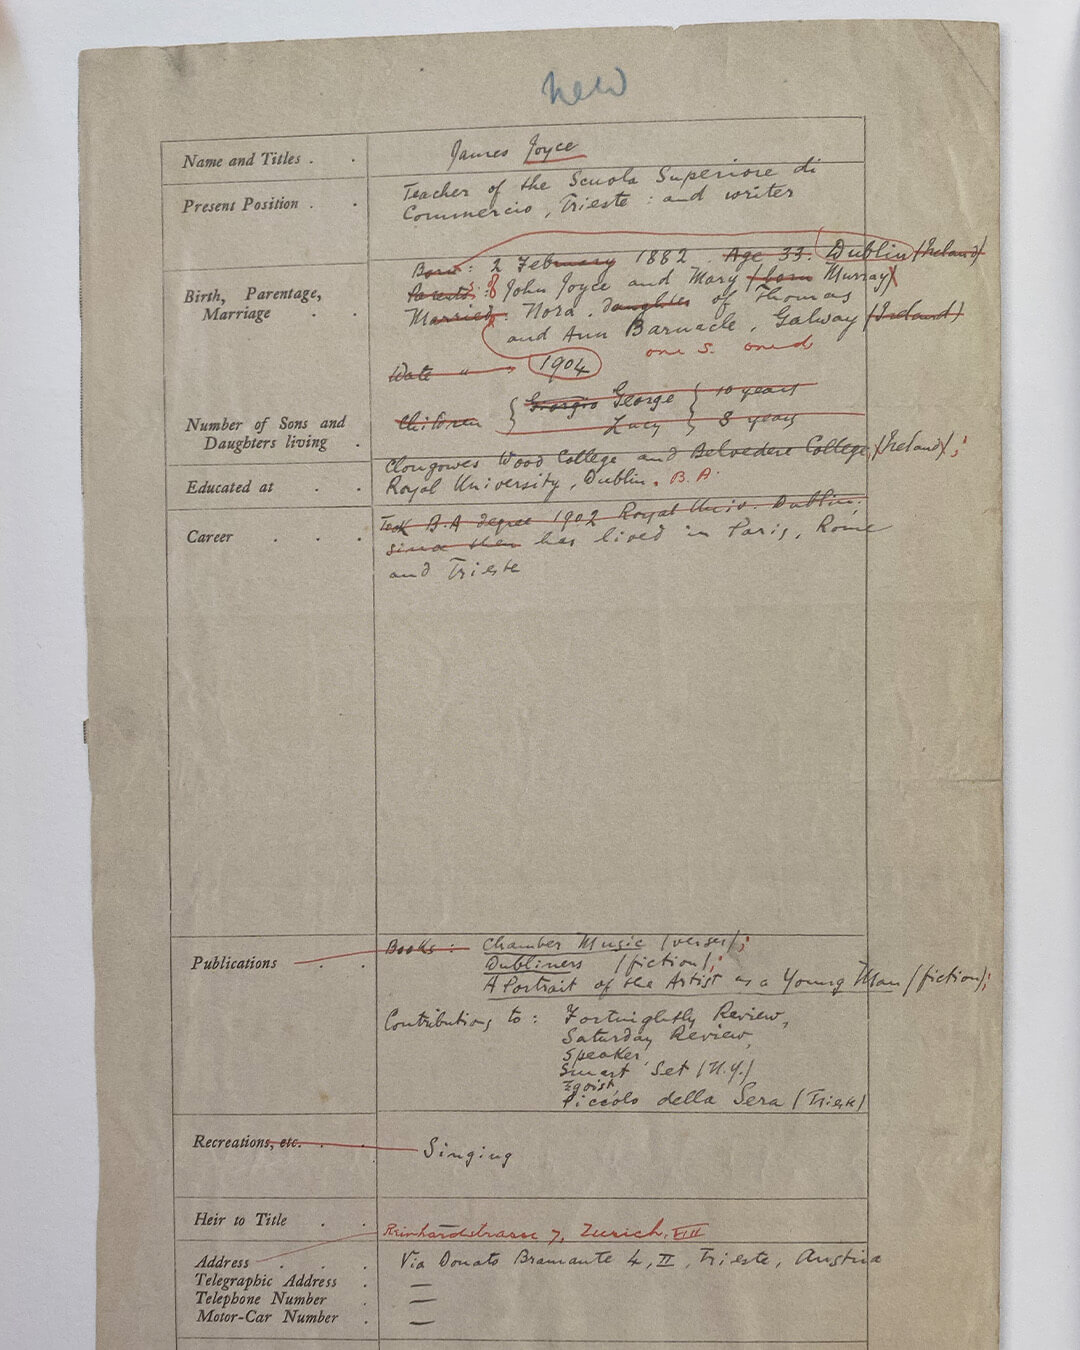 new
Name and Titles . . James Joyce
Present Position . . Teacher of the Scuola Superiore di
Commercio, Trieste : and writer
Born : 2 February 1882 . Age 33. Dublin (Ireland)
Birth, Parentage, Parents : John Joyce and Mary (born Murray)
Marriage . . Married : Nora . daughter of Thomas
and Ann Barnacle, Galway (Ireland)
one s. one d
Date " : 1904
Children { Giorgio George } 10 years
Number of Sons and Lucy } 8 years
Daughters living .
Clongowes Wood College and Belvedere College (Ireland) ;
Educated at . . Royal University, Dublin. B.A.
Took B.A degree 1902 Royal Univ. Dublin.
Career . . . since then has lived in Paris, Rome
and Trieste
Publications . . Books : Chamber Music (verses);
Dubliners (fiction);
A Portrait of the Artist as a Young Man (fiction);
Contributions to : Fortnightly Review,
Saturday Review,
Speaker,
Smart Set (N.Y.)
Egoist,
Piccolo della Sera (Trieste)
Recreations, etc. . . Singing
Heir to Title . .
Reinhardstrasse 7, Zurich, VIII
Address . . . Via Donato Bramante 4, II, Trieste, Austria
Telegraphic Address . —
Telephone Number . —
Motor-Car Number . —